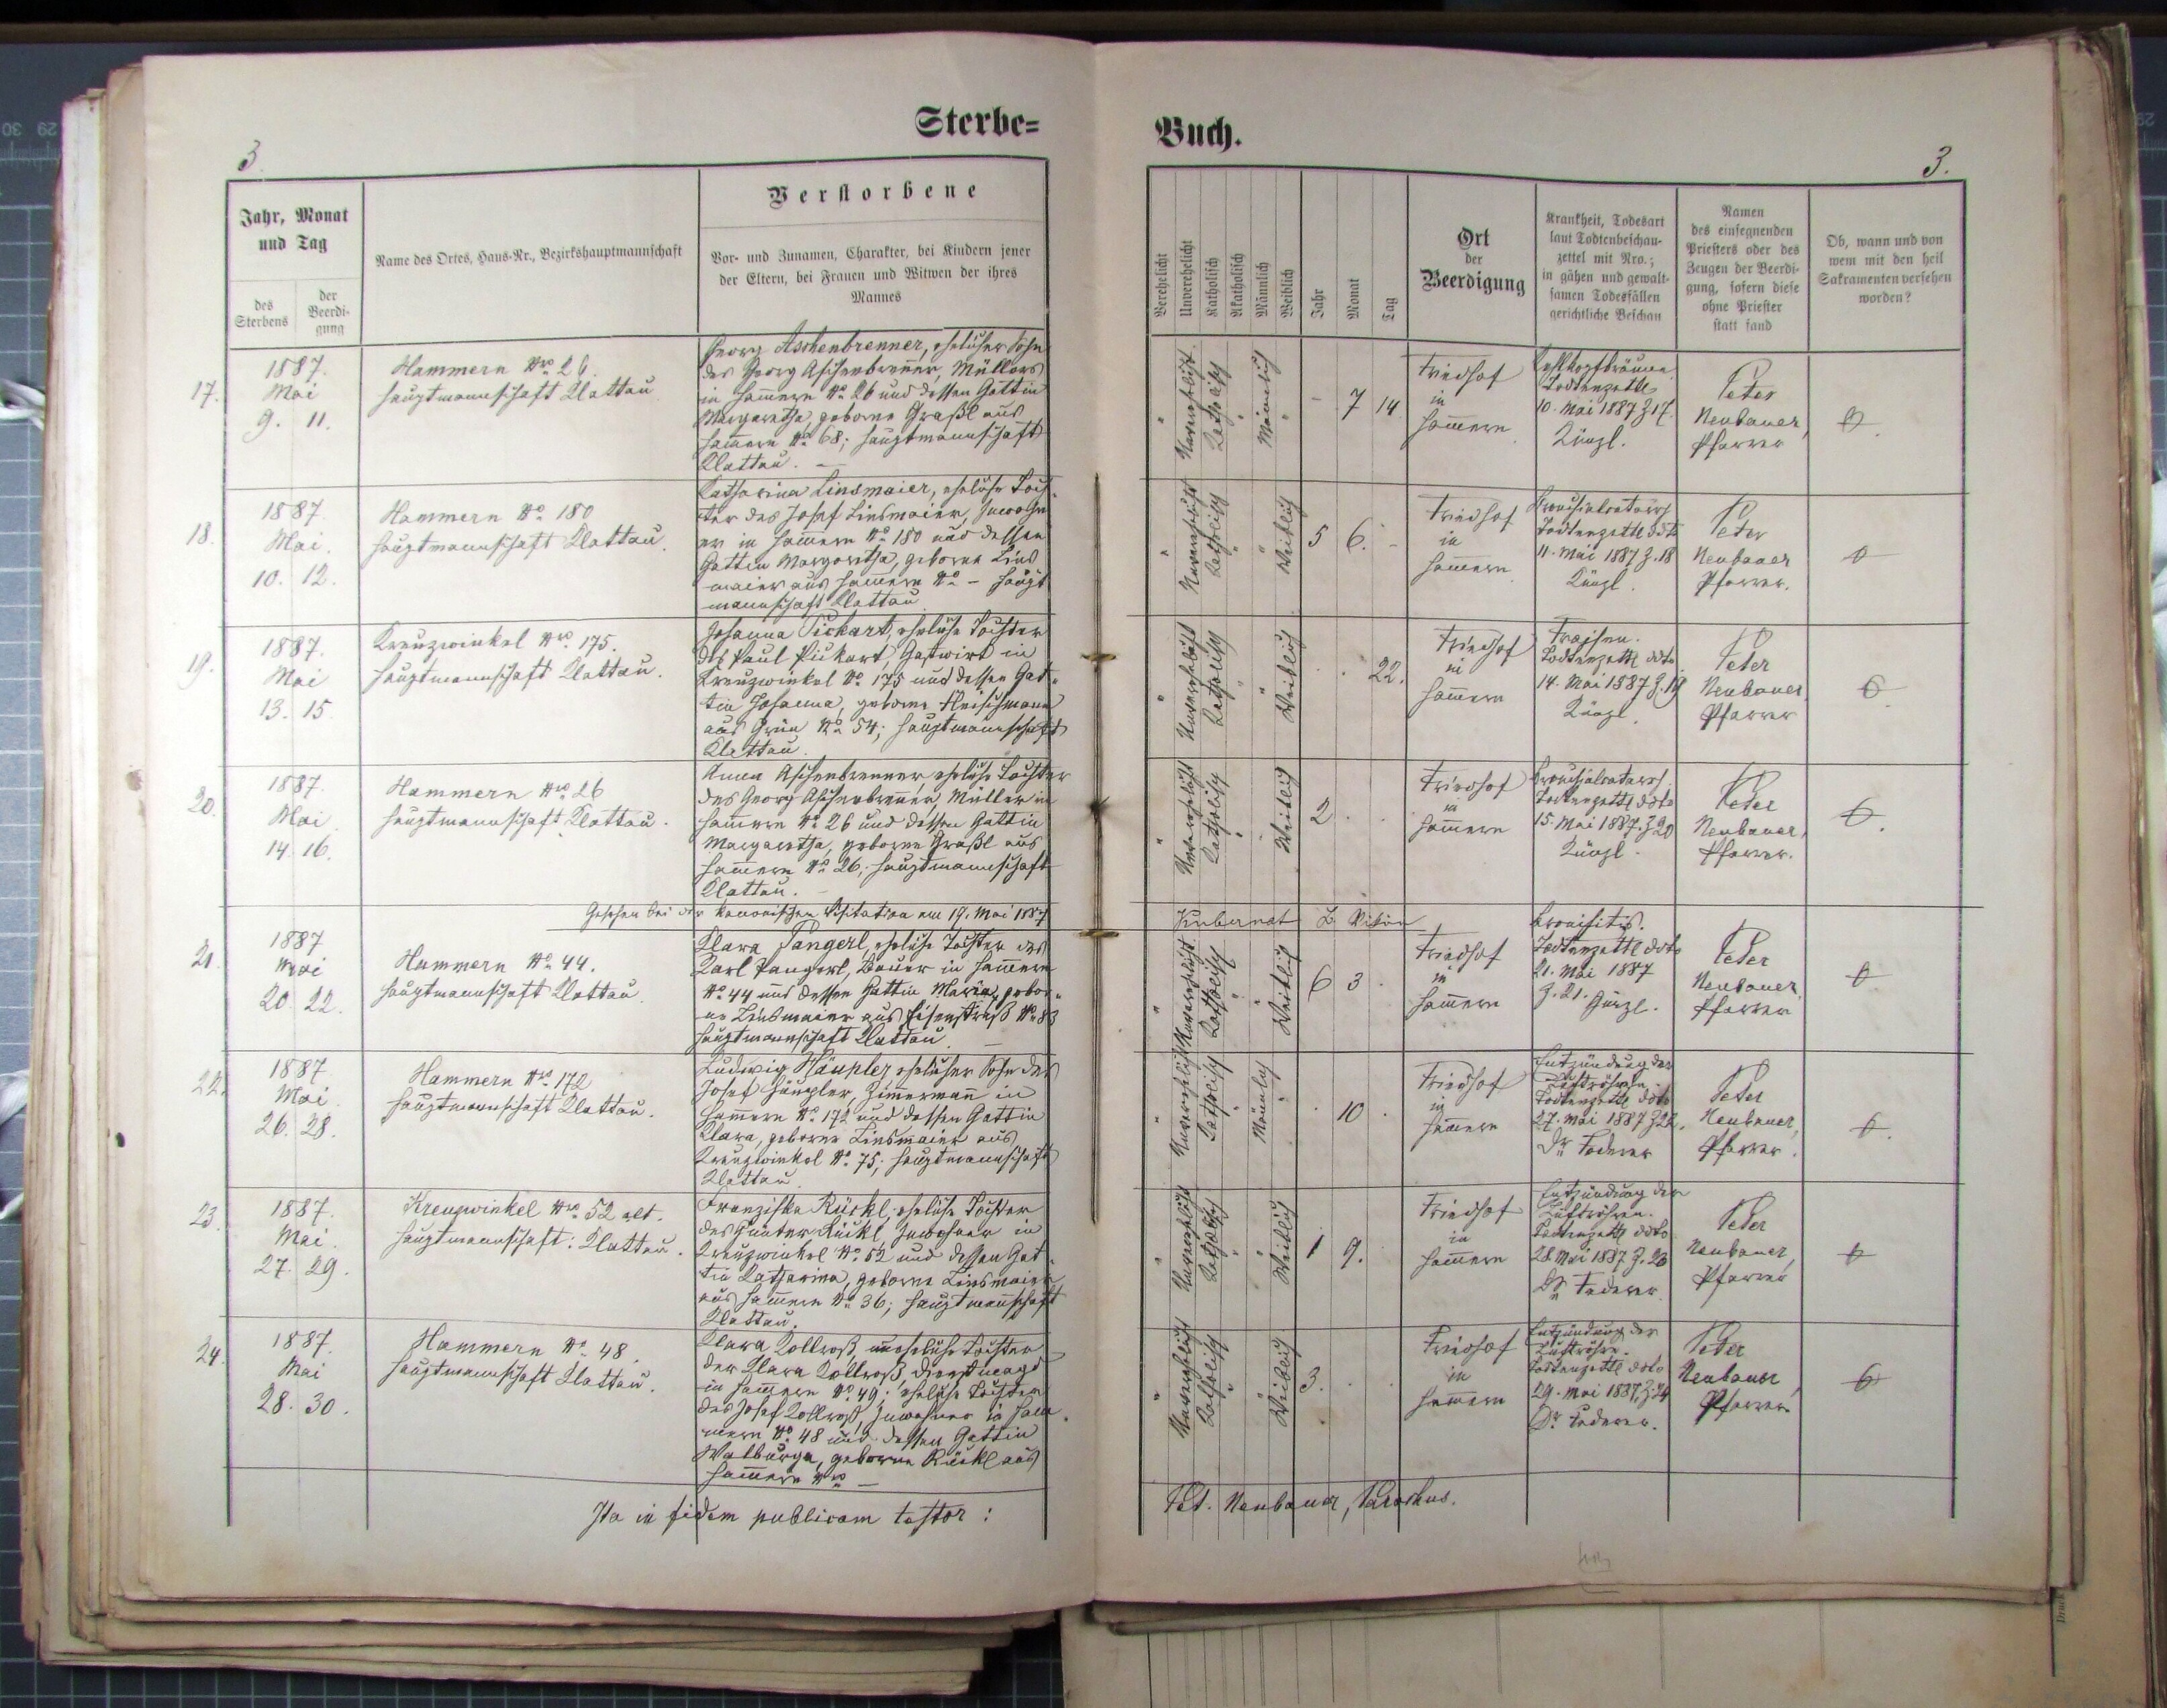 Sterbe=
Buch.
3.
3.
Jahr, Monat
und Tag
des
Sterbens
der
Beerdi-
gung
Name des Ortes, Haus-Nr., Bezirkshauptmannschaft
Verstorbene
Vor- und Zunamen, Charakter, bei Kindern jener
der Eltern, bei Frauen und Witwen der ihres
Mannes
Verehelicht
Unverehelicht
Katholisch
Akatholisch
Männlich
Weiblich
Jahr
Monat
Tag
Ort
der
Beerdigung
Krankheit, Todesart
laut Todtenbeschau-
zettel mit Nro.;
in gähen und gewalt-
samen Todesfällen
gerichtliche Beschau
Namen
des einsegnenden
Priesters oder des
Zeugen der Beerdi-
gung, sofern diese
ohne Priester
statt fand
Ob, wann und von
wem mit den heil
Sakramenten versehen
worden?
17.
1887.
Mai
9. 11.
Hammern Nro 26.
Hauptmannschaft Klattau
Georg Aschenbrenner, ehelicher Sohn
des Georg Aschenbrenner, Müllers
in Hammern No 26 und dessen Gattin
Margaretha, geborne Graßl aus
Hammern No 68; Hauptmannschaft
Klattau. —
Unverehelicht
Katholisch
Männlich
- 7 14
Friedhof
in
Hammern
Kehlkopfbräune
Todtenzettl
10. Mai 1887 Z 17.
Küngl.
Peter
Neubauer,
Pfarrer
18.
1887
Mai.
10. 12.
Hammern No 180
Hauptmannschaft Klattau.
Katharina Linsmaier, eheliche Toch-
ter des Josef Linsmaier, Inwohn
er in Hammern No 180 und dessen
Gattin Margaretha, geborne Lins
maier aus Hammern No - Haupt
mannschaft Klattau
Unverehelicht
Katholisch
Weiblich
5 6. -
Friedhof
in
Hammern
Todtenzettl ddto
11. Mai 1887 Z. 18
Küngl.
Peter
Neubauer
Pfarrer.
19.
1887.
Mai
13. 15.
Kreuzwinkel Nro 175.
Hauptmannschaft Klattau.
Johanna Pickart, eheliche Tochter
des Paul Pickart, Gastwirt in
Kreuzwinkel No 175 und dessen Gat-
tin Johanna, geborne Fleischmann
aus Grün No 54; Hauptmannschaft
Klattau.
Unverehelicht
Katholisch
Weiblich
22.
Friedhof
in
Hammern
Fraisen.
Todtenzettl ddto
14. Mai 1887 Z. 19
Küngl.
Peter
Neubauer
Pfarrer
20.
1887.
Mai
14. 16.
Hammern Nro 26
Hauptmannschaft Klattau.
Anna Aschenbrenner, eheliche Tochter
des Georg Aschenbrenner, Müller in
Hammern No 26 und dessen Gattin
Margaretha, geborne Graßl aus
Hammern No 26; Hauptmannschaft
Klattau. -
Unverehelicht
Katholisch
Weiblich
2
Friedhof
in
Hammern
Todtenzettl ddto
15. Mai 1887. Z 20
Küngl.
Peter
Neubauer,
Pfarrer.
Gesehen bei der kanonischen Visitation am 19. Mai 1887
21.
1887
Mai
20. 22.
Hammern No 44.
Hauptmannschaft Klattau.
Klara Pangerl, eheliche Tochter des
Karl Pangerl, Bauer in Hammern
No 44 und dessen Gattin Maria, gebor-
ne Linsmaier aus Eisenstraß No 83
Hauptmannschaft Klattau
Unverehelicht
Katholisch
Weiblich
6 3
Friedhof
in
Hammern
Bronchitis.
Todtenzettl ddto
21. Mai 1887
Z. 21. Küngl.
Peter
Neubauer
Pfarrer
22.
1887
Mai
26. 28.
Hammern Nro 172
Hauptmannschaft Klattau.
Ludwig Häupler, ehelicher Sohn des
Josef Häupler, Zimmermann in
Hammern No 172 und dessen Gattin
Klara, geborne Linsmaier aus
Kreuzwinkel No 75; Hauptmannschaft
Klattau
Unverehelicht
Katholisch
Männlich
10
Friedhof
in
Hammern
Entzündung der
Luftröhren.
Todtenzettl ddto
27. Mai 1887 Z 22.
Dr. Foderer
Peter
Neubauer,
Pfarrer.
23.
1887.
Mai.
27. 29.
Kreuzwinkel Nro 52 alt.
Hauptmannschaft: Klattau.
Franziska Rückl, eheliche Tochter
des Günter Rückl, Inwohner in
Kreuzwinkel No 52 und dessen Gat-
tin Katharina, geborne Linsmaier
aus Hammern No 36; Hauptmannschaft
Klattau.
Unverehelicht
Katholisch
Weiblich
1 9.
Friedhof
in
Hammern
Entzündung der
Luftröhren.
Todtenzettl ddto
28 Mai 1887 Z. 23
Dr Foderer
Peter
Neubauer,
Pfarrer
24.
1887.
Mai
28. 30.
Hammern No 48.
Hauptmannschaft Klattau.
Klara Kollroß, uneheliche Tochter
der Klara Kollroß, Dienstmagd
in Hammern No 49; eheliche Tochter
des Josef Kollroß, Inwohner in Ham-
mern No 48 und dessen Gattin
Walburga, geborne Rückl aus
Hammern Nro —
Unverehelicht
Katholisch
Weiblich
3.
Friedhof
in
Hammern
Entzündung der
Luftröhre.
Todtenzettl ddto
29. Mai 1887, Z. 24
Dr Foderer.
Peter
Neubauer
Pfarrer.
Ita in fidem publicam testor:
Pet. Neubauer, Parochus.